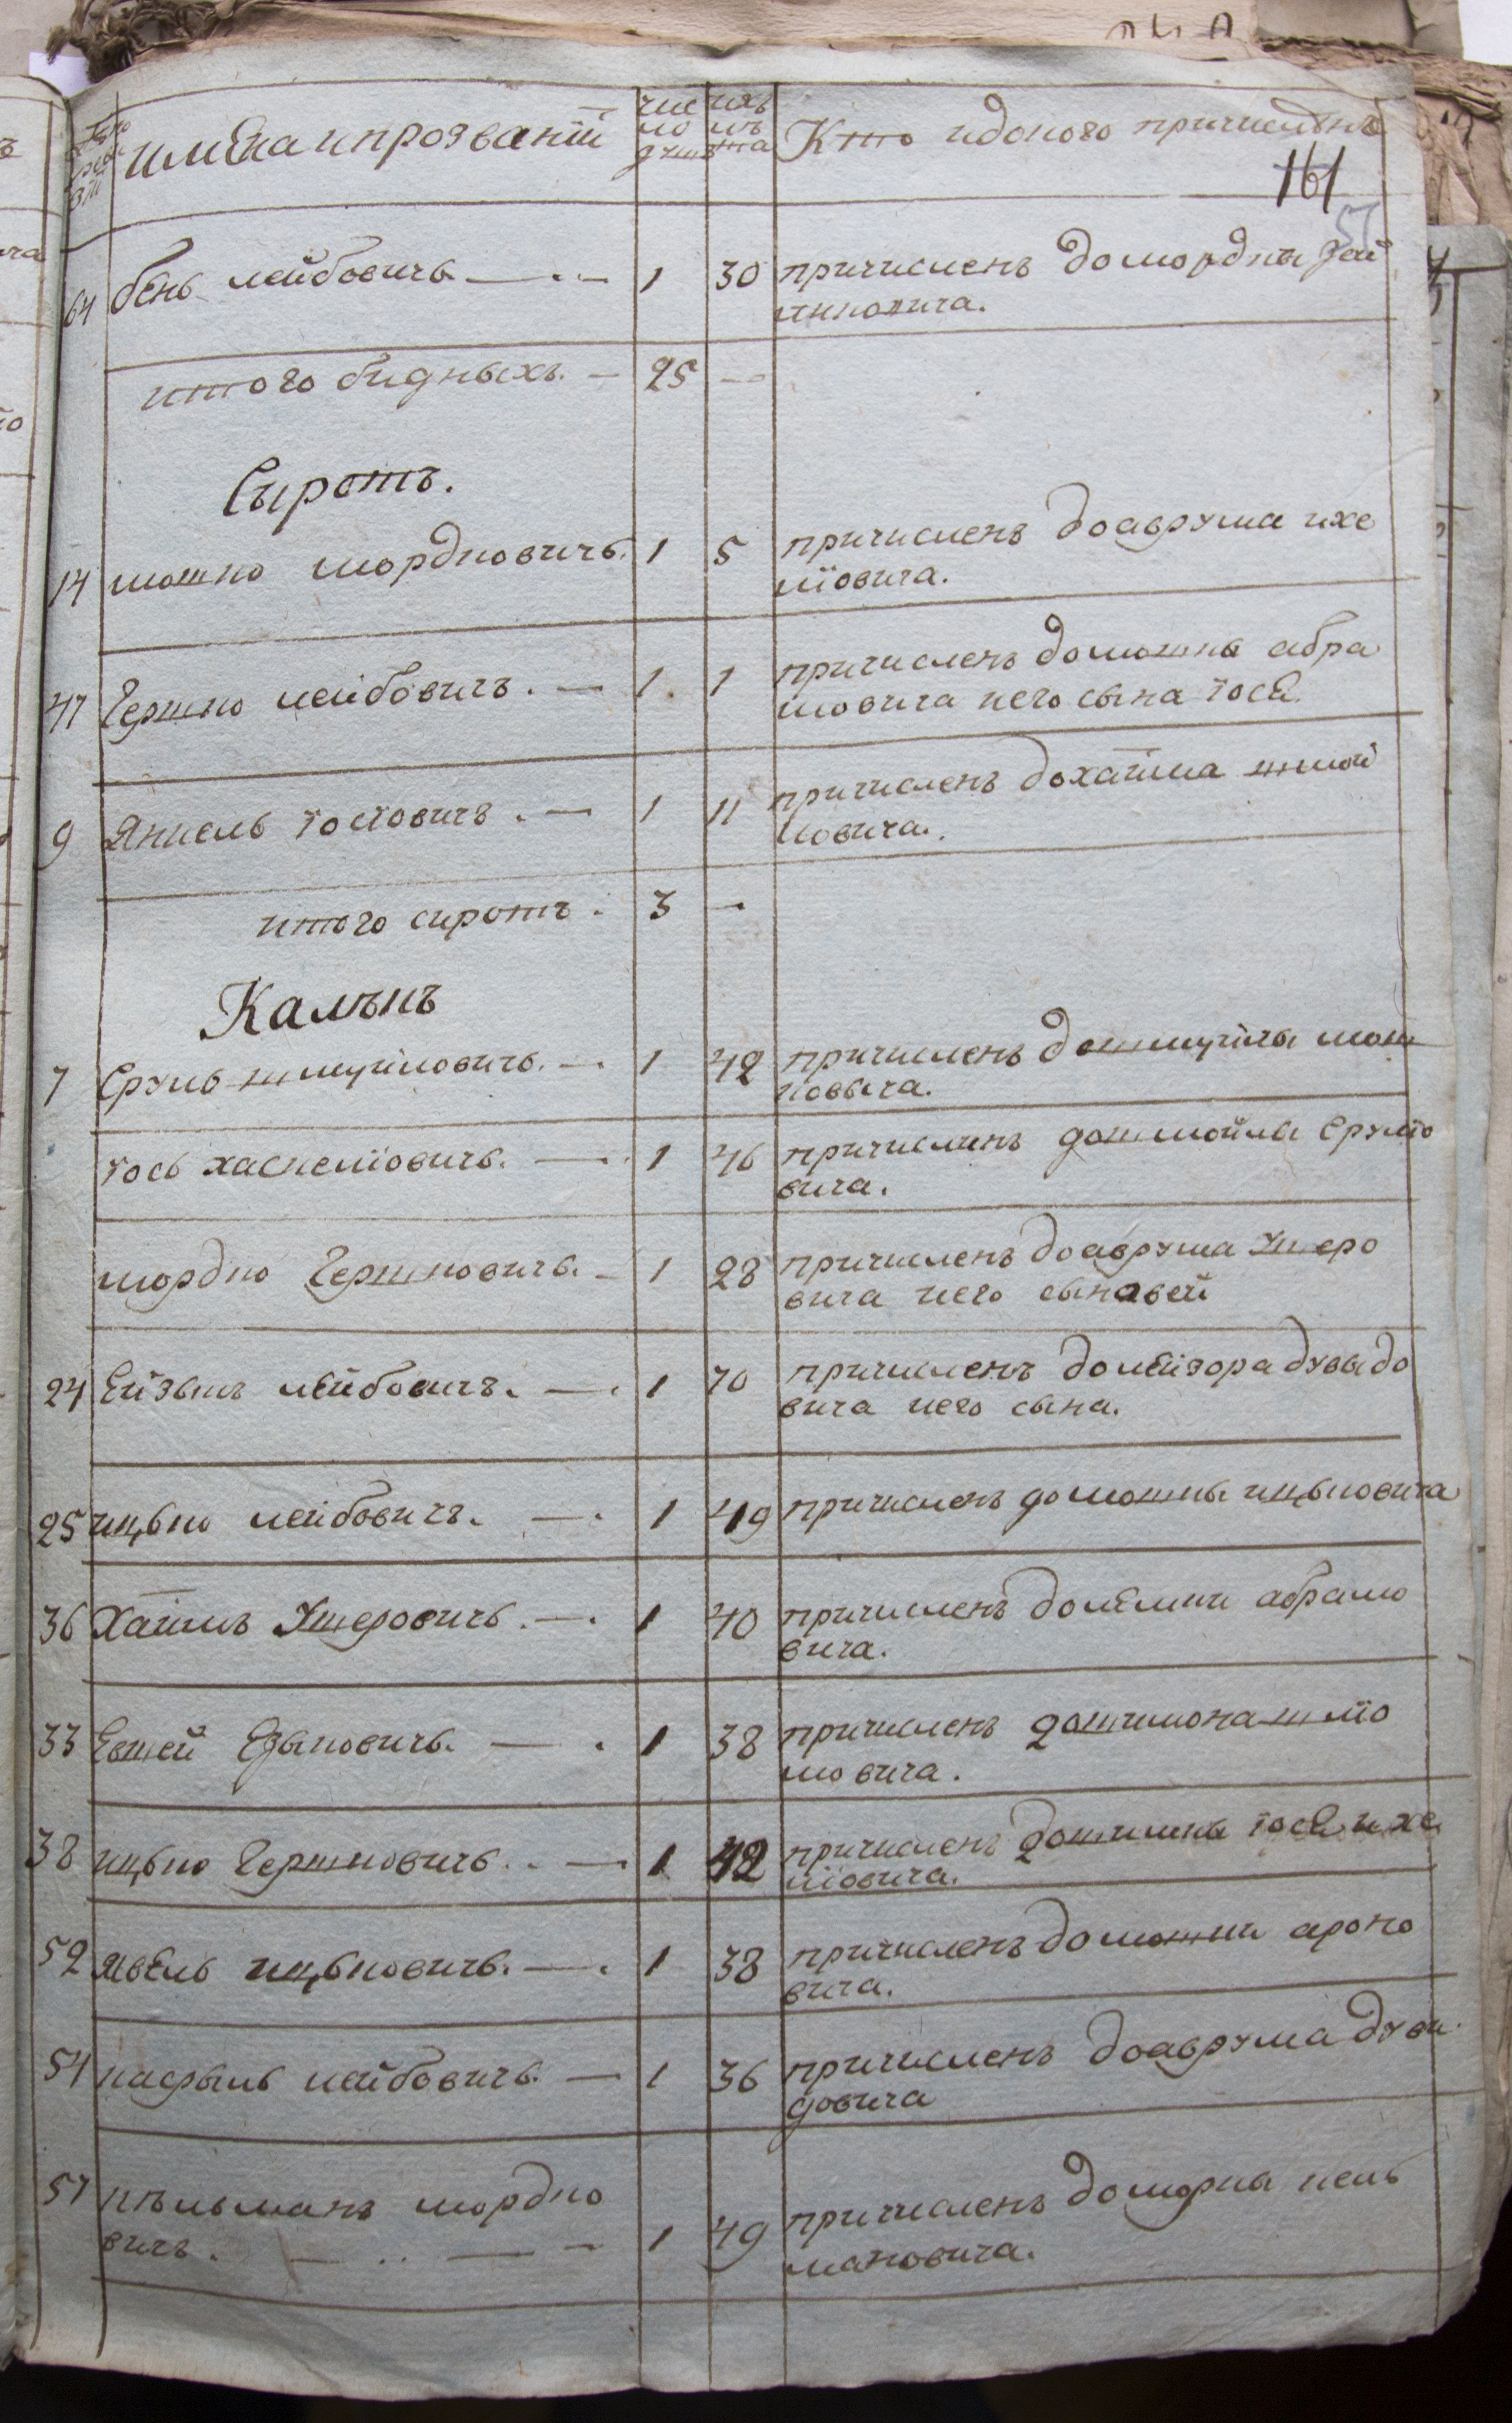 имена и прозваний
чис
ло
душ
лѣ
та
Кто и до кого причисленъ
161
57
64 бень лейбовичъ — 1 30 причисленъ до мордки
итого бидныхъ. — 25 —
Сыротъ.
14 мошко мордковичъ. 1 5 причисленъ до аврума ихе
лїовича.
47 Гершко лейбовичъ. — 1. 1 причисленъ до мошка абра
мовича иего сына иосѣ
9 Янкель иосїовичъ. — 1 11 причисленъ до хаїма шмой
ловича.
итого сиротъ. 3 —
Калѣкъ
7 Сруль шмуйловичъ. — 1 42 причисленъ до шмуйла мош
ковыча.
иось хаскелїовичъ. — 1 46 причисленъ до шмойла срулїо
вича.
мордко Гершковичъ. — 1 28 причисленъ до аврума Ушеро
вича иего сыновей
24 Ейзыкъ лейбовичъ. — 1 70 причисленъ до лейзора дувыдо
вича иего сына.
25 ицько лейбовичъ. — 1 49 причисленъ до мошки ицьковича
36 Хаїмъ Ушеровичъ. — 1 40 причисленъ до абрамо
вича.
33 Евшей Езыковичъ. — 1 38 причисленъ до шимона шлїо
мовича.
38 ицько Гершковичъ. — 1 42 причисленъ до иосѣ ихе
лїовича.
52 явель ицьковичъ. — 1 38 причисленъ до мошки ароно
вича.
54 лейбовичъ. — 1 36 причисленъ до аврума дуви
довича
57 кѣльманъ мордко
вичъ. — 1 49 причисленъ до кель
мановича.